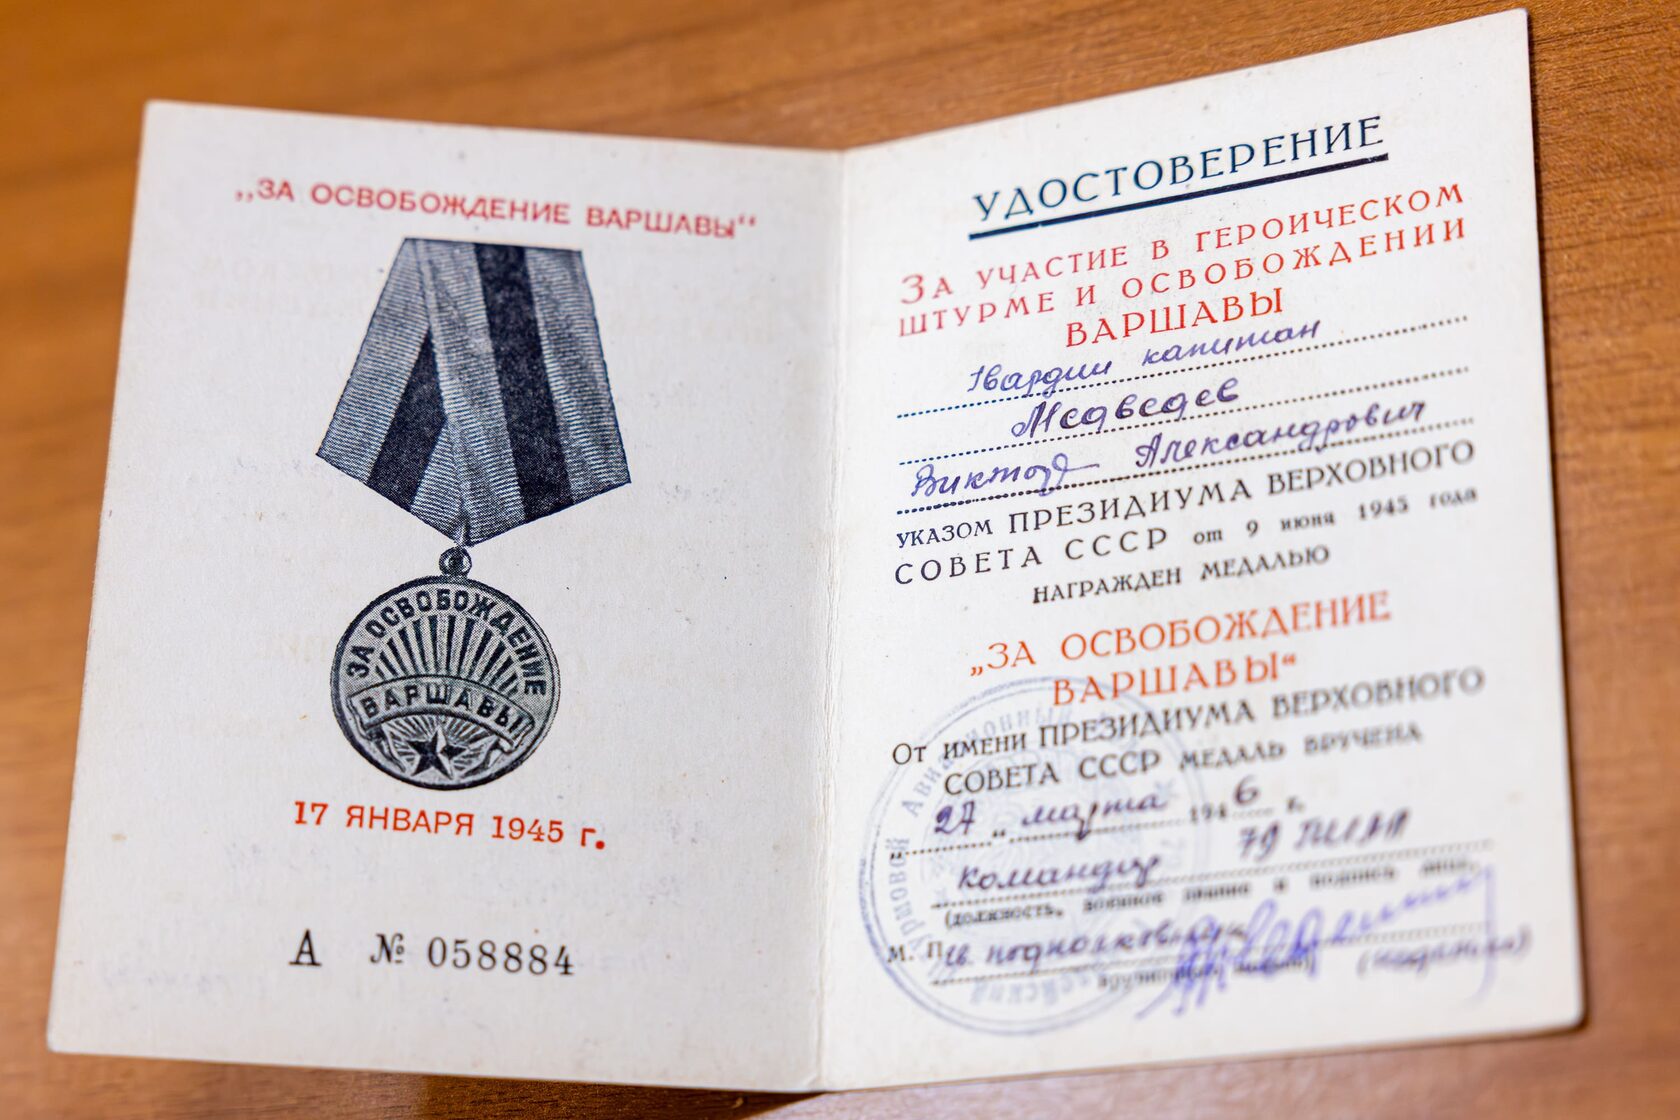 „ЗА ОСВОБОЖДЕНИЕ ВАРШАВЫ“
ЗА ОСВОБОЖДЕНИЕ
ВАРШАВЫ
17 ЯНВАРЯ 1945 г.
А № 058884
УДОСТОВЕРЕНИЕ
ЗА УЧАСТИЕ В ГЕРОИЧЕСКОМ
ШТУРМЕ И ОСВОБОЖДЕНИИ
ВАРШАВЫ
Гвардии капитан
Медведев
Виктор Александрович
УКАЗОМ ПРЕЗИДИУМА ВЕРХОВНОГО
СОВЕТА СССР от 9 июня 1945 года
НАГРАЖДЕН МЕДАЛЬЮ
„ЗА ОСВОБОЖДЕНИЕ
ВАРШАВЫ“
От ИМЕНИ ПРЕЗИДИУМА ВЕРХОВНОГО
СОВЕТА СССР МЕДАЛЬ ВРУЧЕНА
„27„ марта 1946 г.
командир 79 ГШАП
(должность, воинское звание и подпись лица,
М. П. гв. подполковник
вручившего медаль)